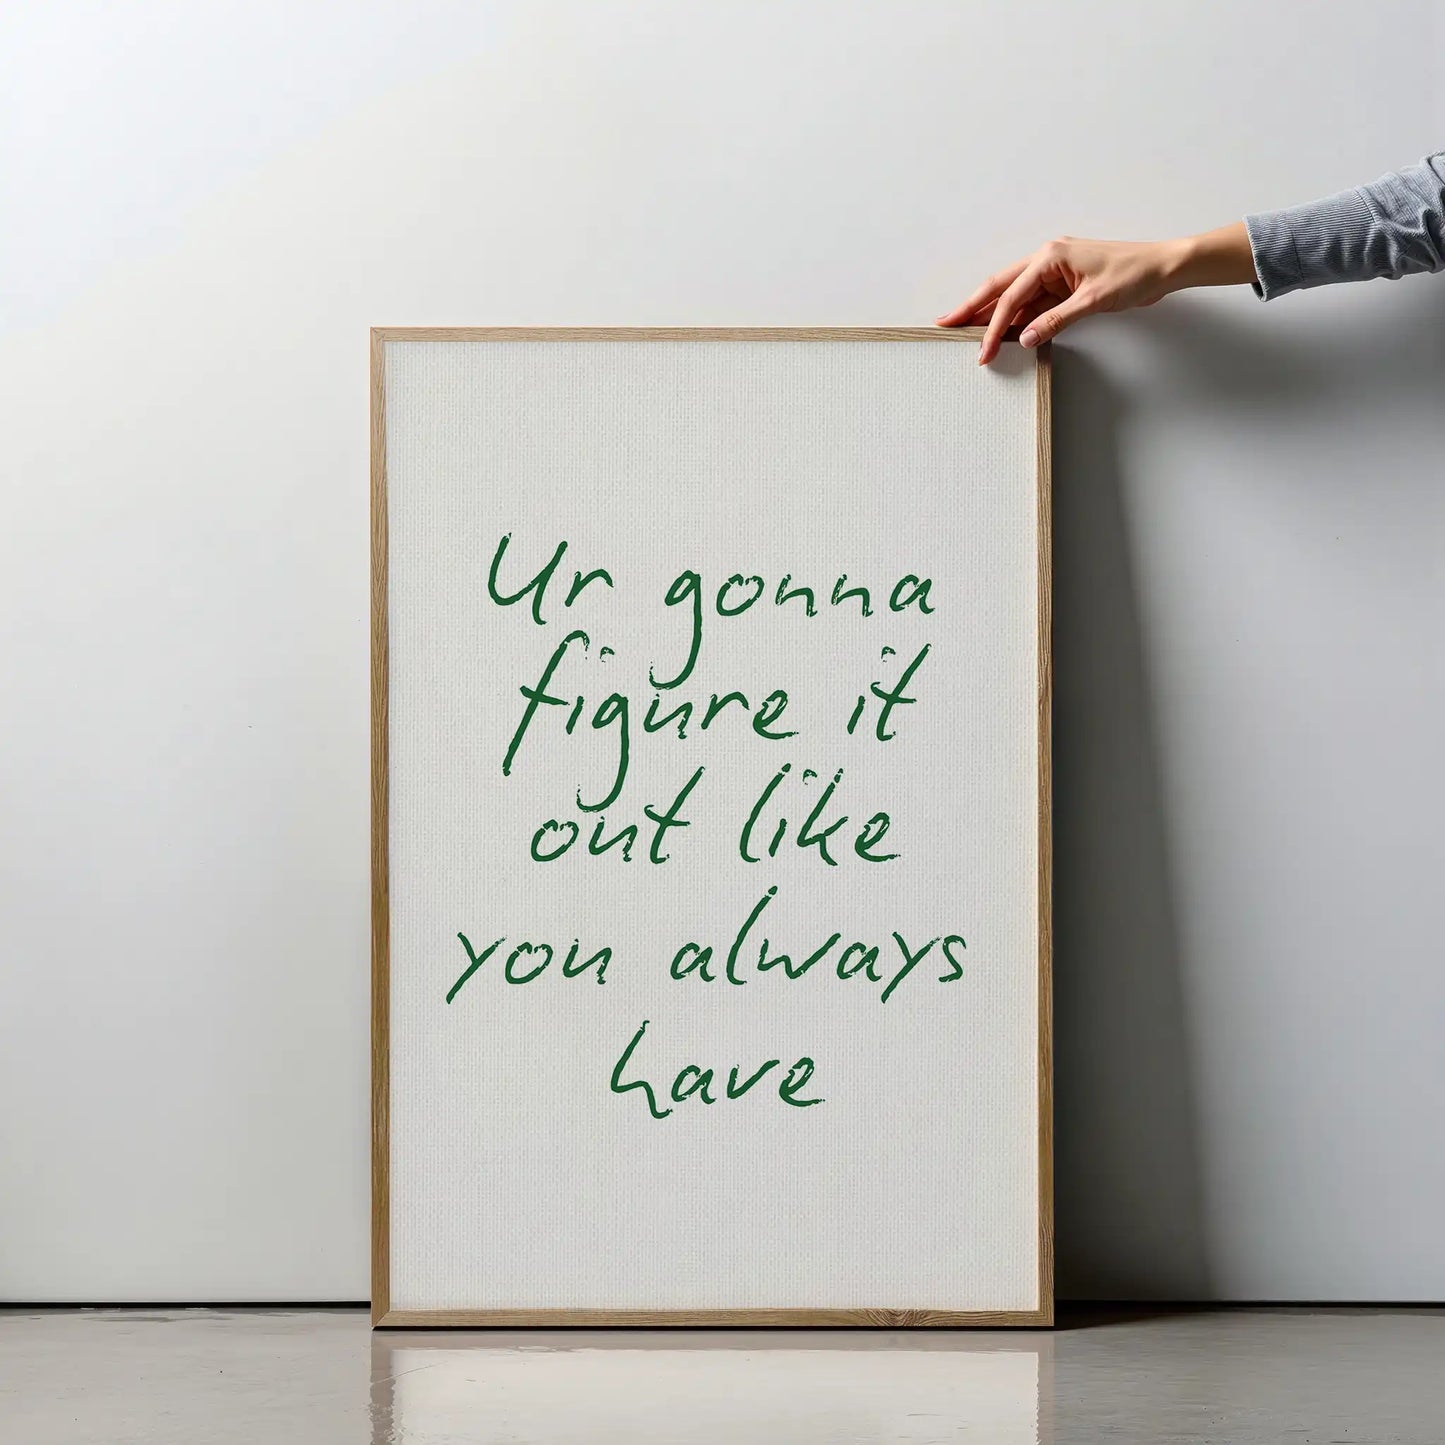 Ur gonna
figure it
out like
you always
have